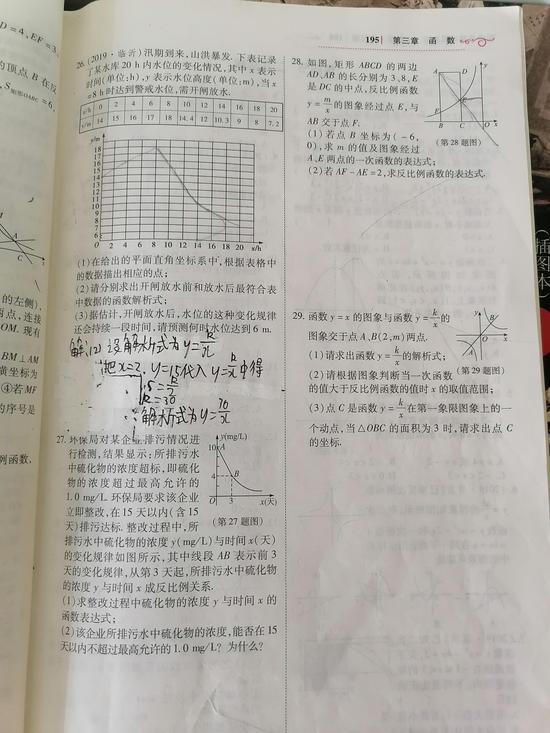 195 第三章 函 数
D=4,EF=3,
的顶点 B 在反
S矩形OABC=6,
的左侧),
两点,连接
OM. 现有
BM⊥AM
横坐标为
④若 MF
的序号是
例函数.
26. (2019·临沂)汛期到来,山洪暴发. 下表记录
了某水库 20 h 内水位的变化情况,其中 x 表示
时间(单位:h),y 表示水位高度(单位:m),当 x
=8 h 时达到警戒水位,需开闸放水.
x/h 0 2 4 6 8 10 12 14 16 18 20
y/m 14 15 16 17 18 14.4 12 10.3 9 8 7.2
y/m
18
17
16
15
14
13
12
11
10
9
8
7
6
O 2 4 6 8 10 12 14 16 18 20 x/h
(1)在给出的平面直角坐标系中,根据表格中
的数据描出相应的点;
(2)请分别求出开闸放水前和放水后最符合表
中数据的函数解析式;
(3)据估计,开闸放水后,水位的这种变化规律
还会持续一段时间,请预测何时水位达到 6 m.
解:(2)设解析式为y=k/x
把x=2,y=15代入y=k/x中得
15=k/2
k=30
∴解析式为y=
27. 环保局对某企业排污情况进
行检测,结果显示:所排污水
中硫化物的浓度超标,即硫化
物的浓度超过最高允许的
1.0 mg/L. 环保局要求该企业
立即整改,在 15 天以内(含 15
天)排污达标. 整改过程中,所
排污水中硫化物的浓度 y(mg/L)与时间 x(天)
的变化规律如图所示,其中线段 AB 表示前 3
天的变化规律,从第 3 天起,所排污水中硫化物
的浓度 y 与时间 x 成反比例关系.
(1)求整改过程中硫化物的浓度 y 与时间 x 的
函数表达式;
(2)该企业所排污水中硫化物的浓度,能否在 15
天以内不超过最高允许的 1.0 mg/L? 为什么?
y(mg/L)
10 A
4 B
O 3 x(天)
(第 27 题图)
28. 如图,矩形 ABCD 的两边
AD、AB 的长分别为 3、8,E
是 DC 的中点,反比例函数
y=m/x的图象经过点 E,与
AB 交于点 F.
(1)若点 B 坐标为(-6,
0),求 m 的值及图象经过
A、E 两点的一次函数的表达式;
(2)若 AF-AE=2,求反比例函数的表达式.
A D y
F E
B C O x
(第 28 题图)
29. 函数 y=x 的图象与函数 y=k/x的
图象交于点 A、B(2,m)两点.
(1)请求出函数 y=k/x的解析式;
(2)请根据图象判断当一次函数
的值大于反比例函数的值时 x 的取值范围;
(3)点 C 是函数 y=k/x在第一象限图象上的一
个动点,当△OBC 的面积为 3 时,请求出点 C
的坐标.
y
B
O x
A
(第 29 题图)